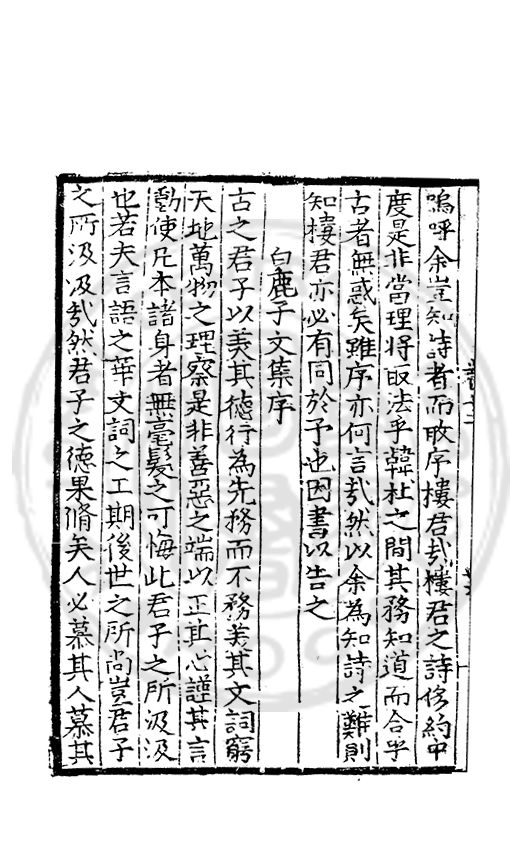 嗚呼余豈知詩者而敢序樓君哉樓君之詩侈約中
度是非當理將取法乎韓杜之間其務知道而合乎
古者無惑矣雖序亦何言哉然以余為知詩之難則
知樓君亦必有同於予也因書以告之
白鹿子文集序
古之君子以美其德行為先務而不務美其文詞窮
天地萬物之理察是非善惡之端以正其心謹其言
動使凡本諸身者無毫髮之可悔此君子之所汲汲
也若夫言語之華文詞之工期後世之所尚豈君子
之所汲汲哉然君子之德果脩矣人必慕其人慕其